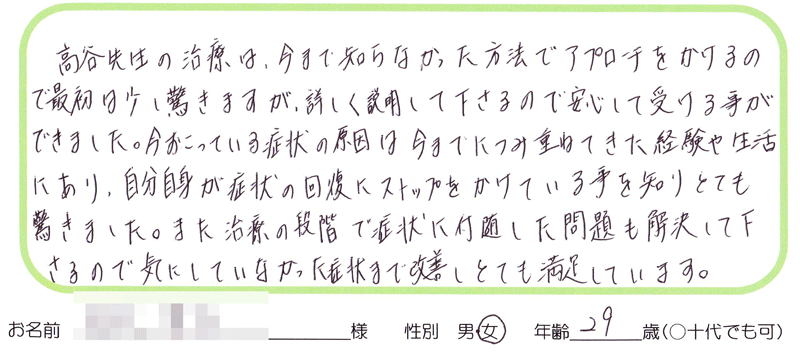 高谷先生の治療は、今まで知らなかった方法でアプローチをかけるの
で最初は少し驚きますが、詳しく説明して下さるので安心して受ける事が
できました。今おこっている症状の原因は今までにつみ重ねてきた経験や生活
にあり、自分自身が症状の回復にストップをかけている事を知りとても
驚きました。また治療の段階で症状に付随した問題も解決して下
さるので気にしていなかった症状まで改善しとても満足しています。
お名前 様 性別 男・女 年齢 29 歳(○十代でも可)